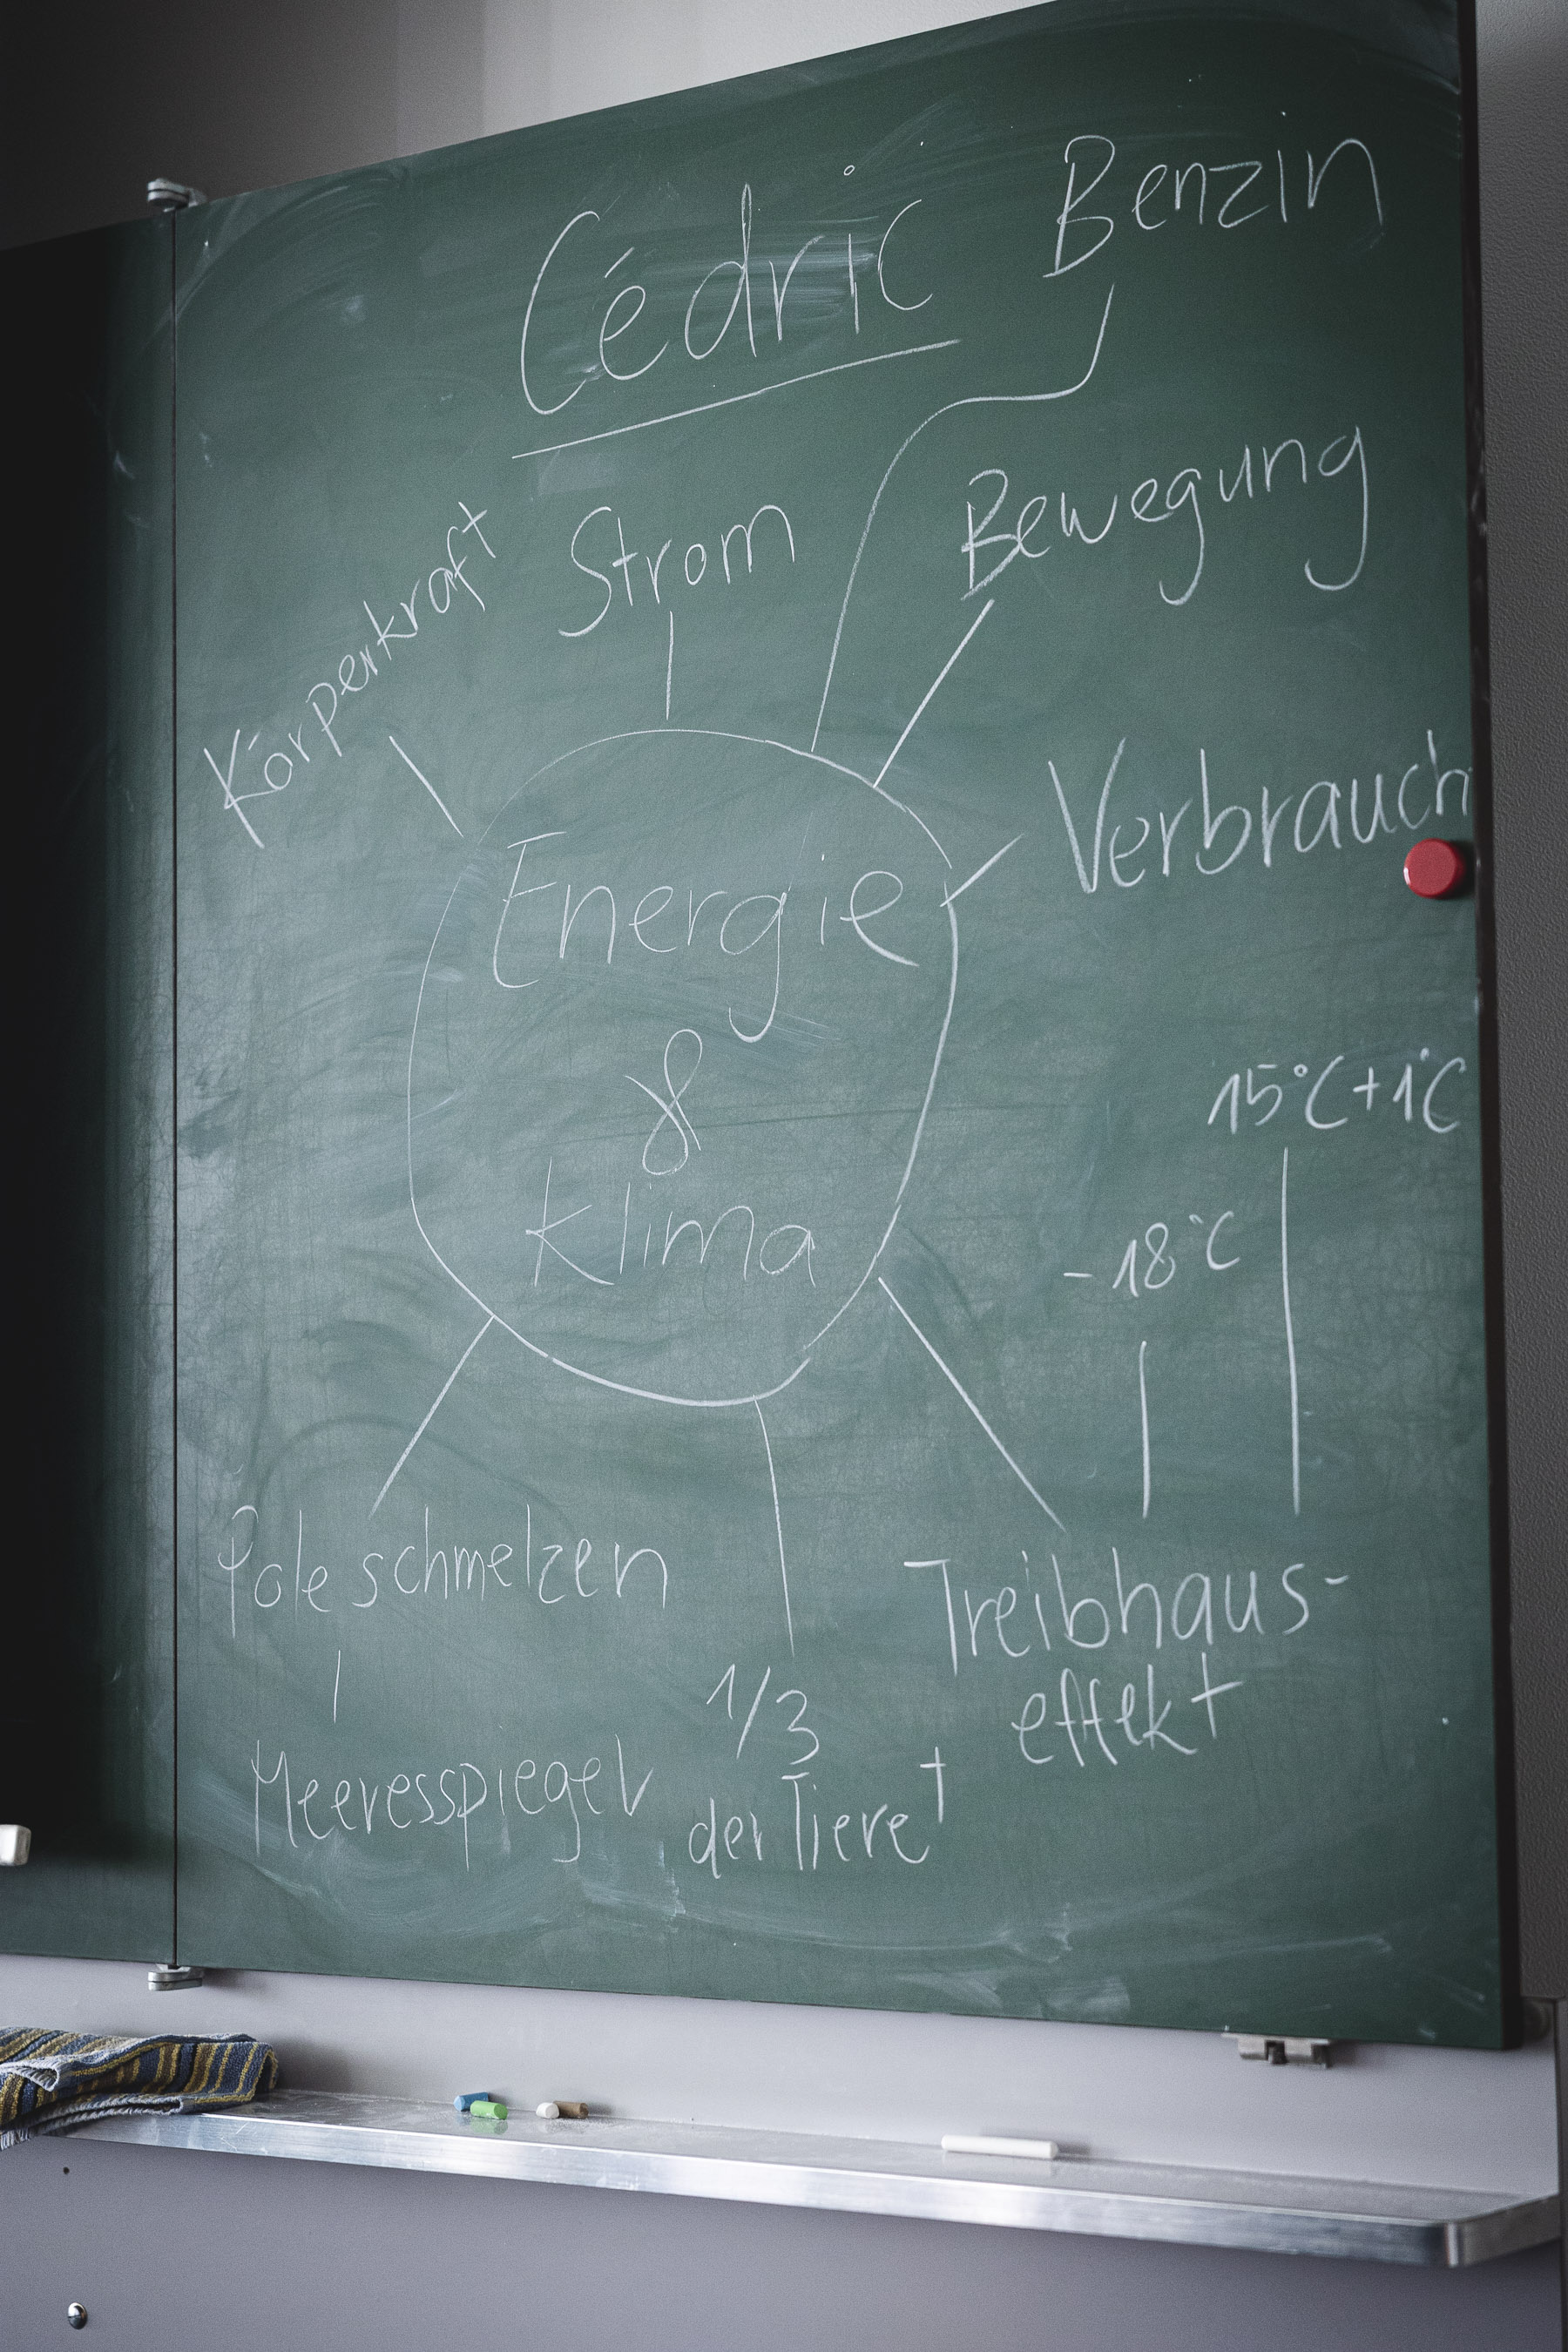 Cédric
Benzin
Körperkraft
Strom
Bewegung
Verbrauch
Energie
&
Klima
15°C+1°C
-18°C
Pole schmelzen
Meeresspiegel
1/3
der Tiere †
Treibhaus-
effekt